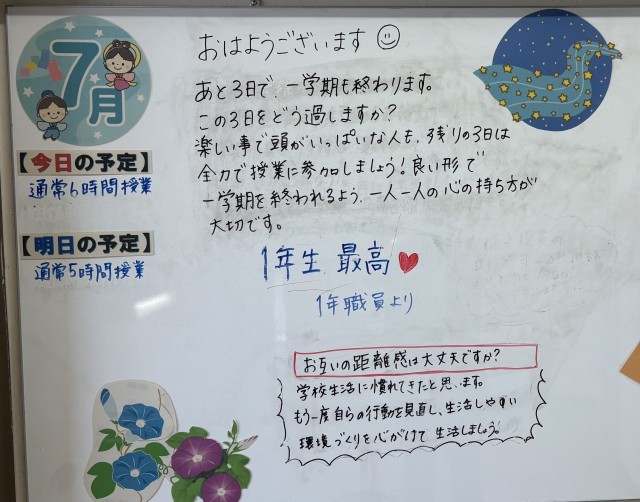 7月
おはようございます
あと3日で、一学期も終わります。
この3日をどう過しますか?
楽しい事で頭がいっぱいな人も、残りの3日は
全力で授業に参加しましょう!良い形で
一学期を終われるよう、一人一人の心の持ち方が
大切です。
【今日の予定】
通常6時間授業
【明日の予定】
通常5時間授業
1年生 最高
1年職員より
お互いの距離感は大丈夫ですか?
学校生活に慣れてきたと思います。
もう一度自らの行動を見直し、生活しやすい
環境づくりを心がけて生活しましょう。